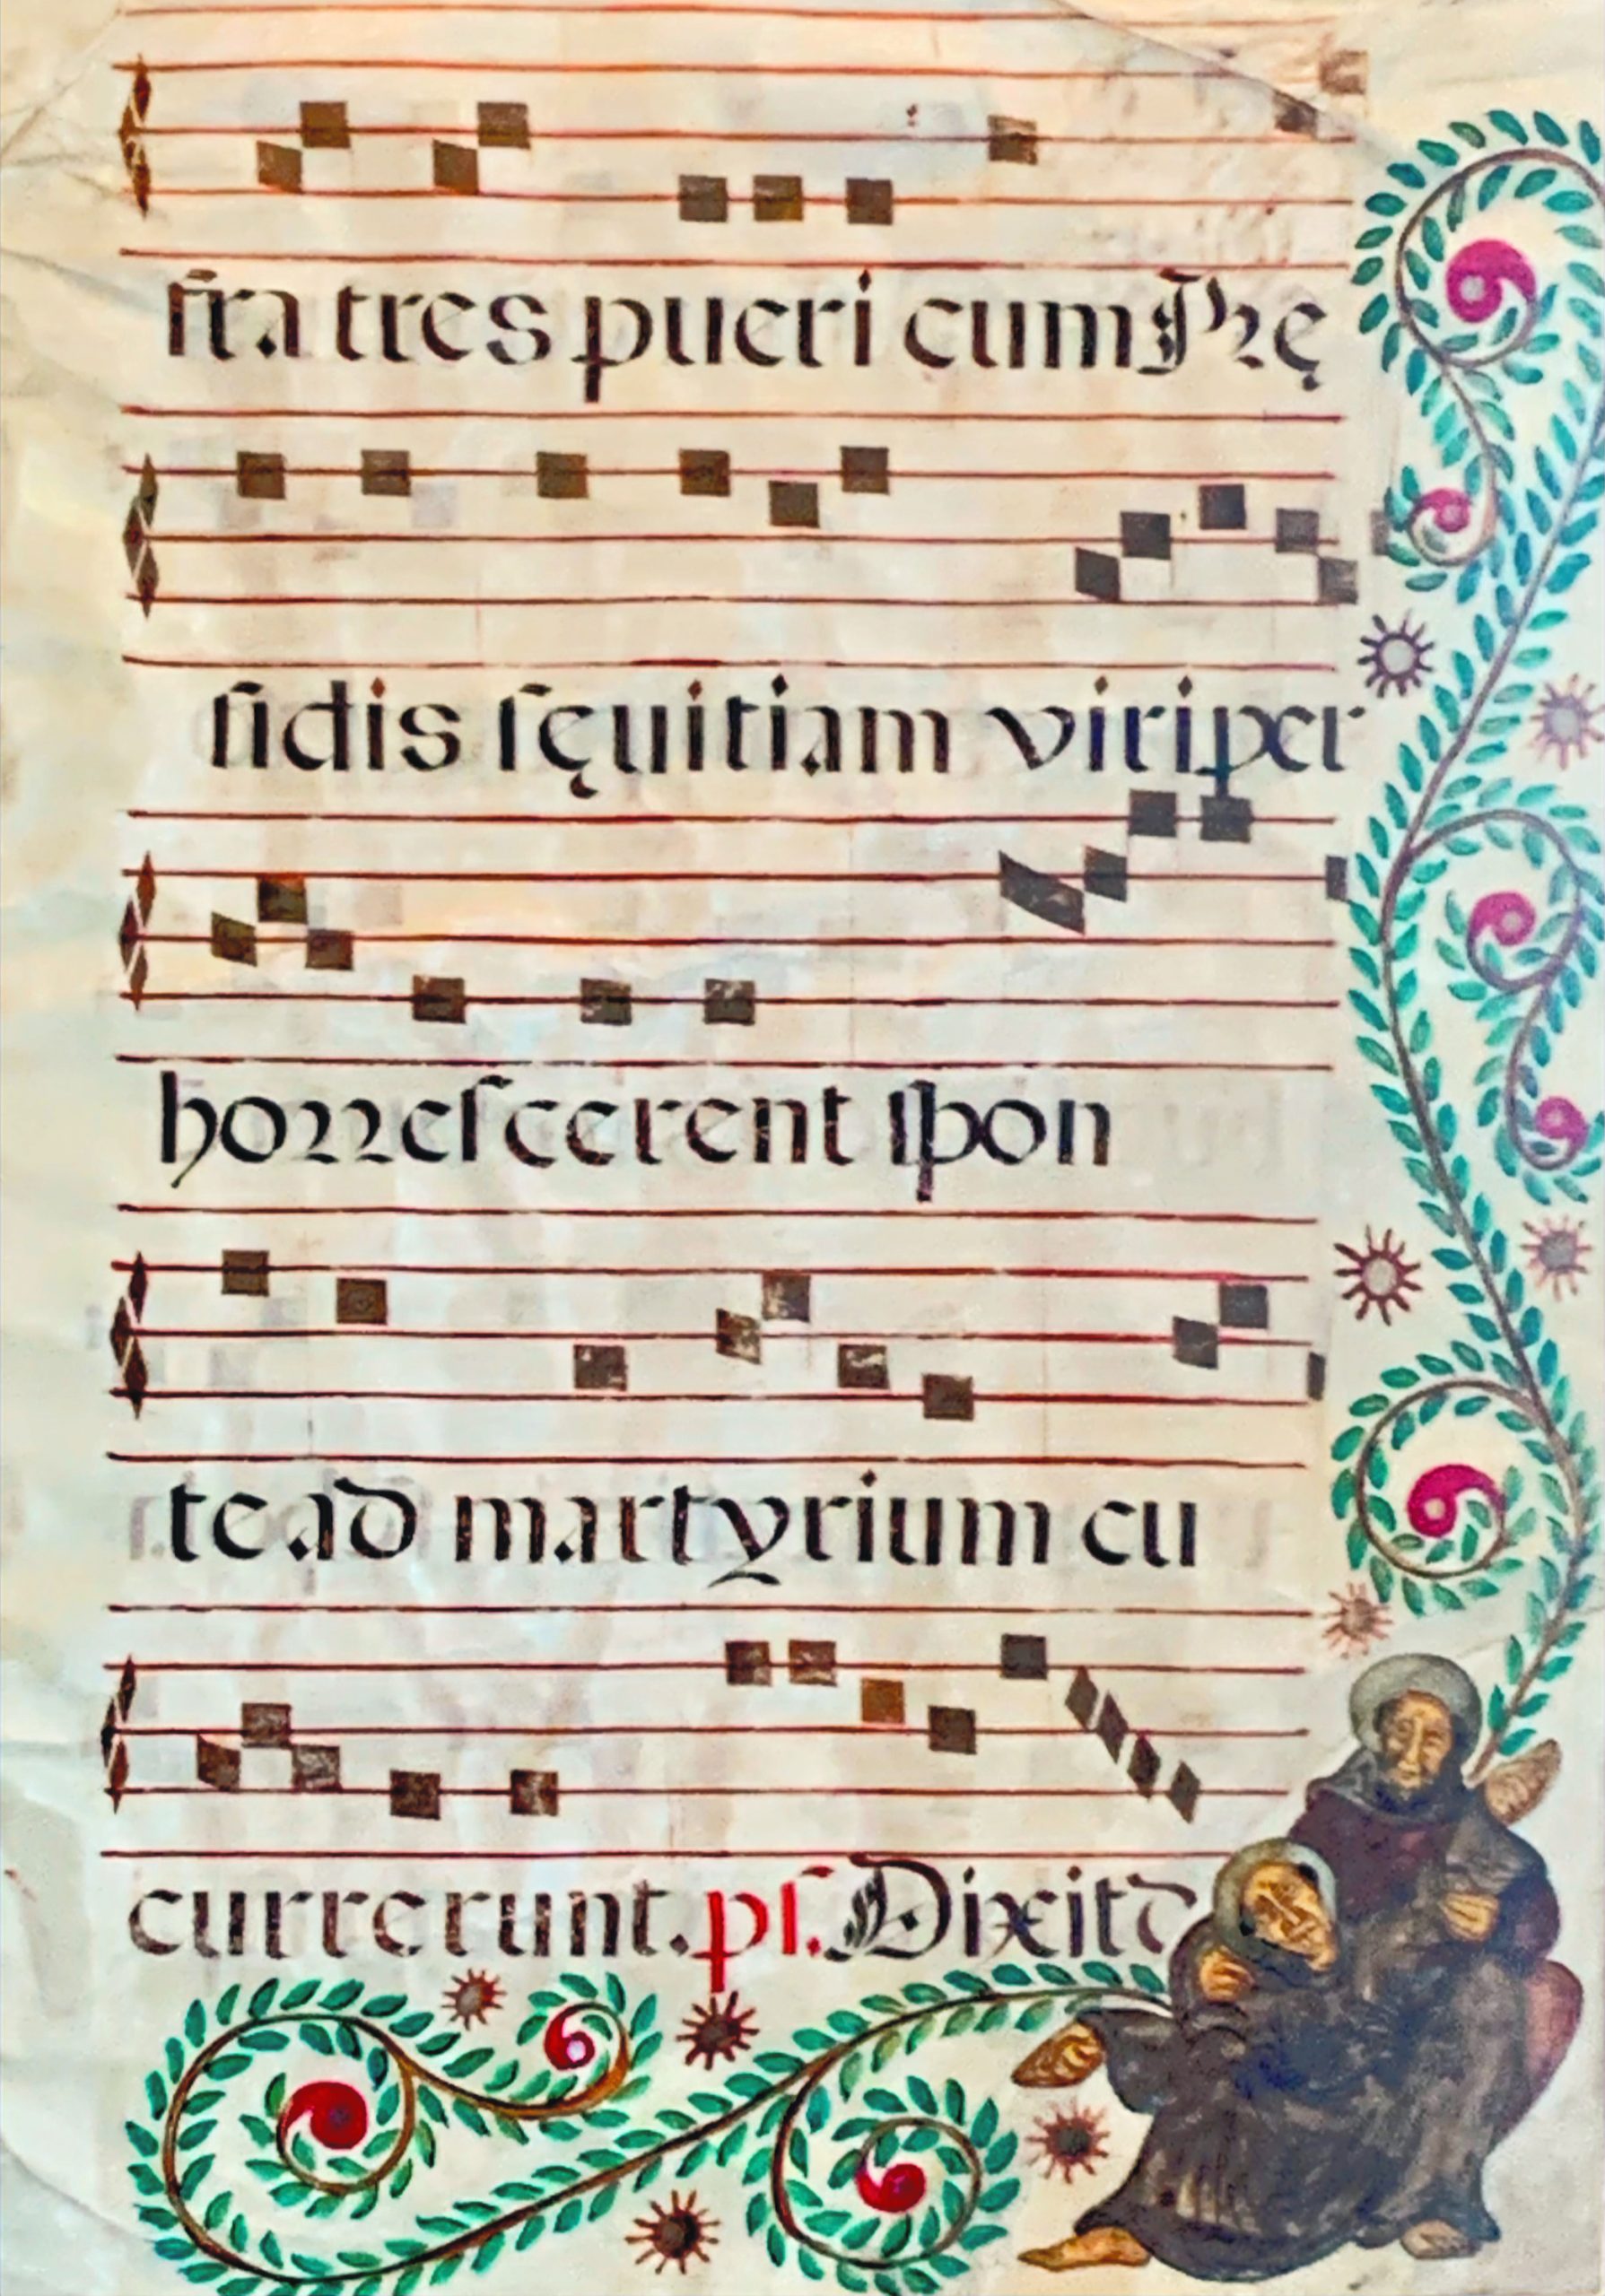 fra tres pueri cum Pre̜
ſidis ſe̜uitiam viri per
horreſcerent ſpon
te ad martyrium cu
currerunt. pſ. Dixit d